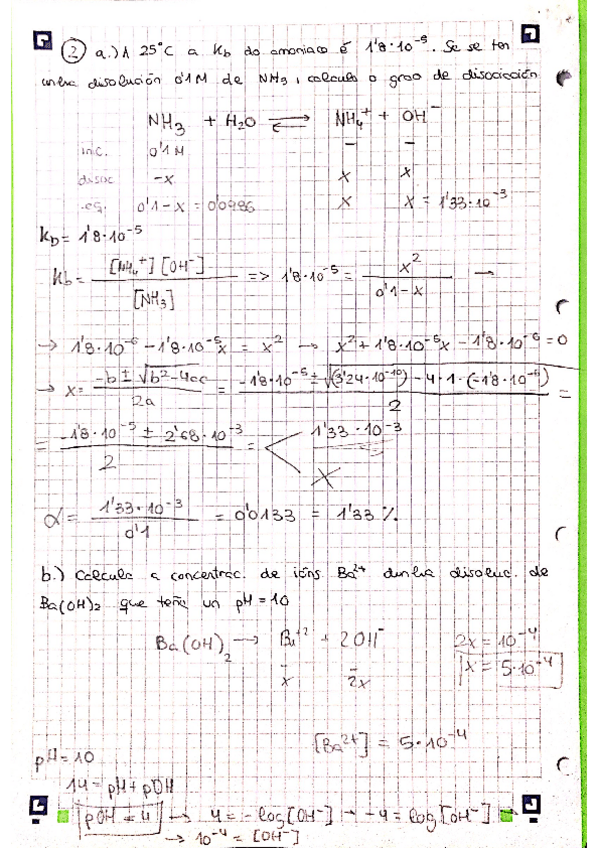 2 a.) A 25°C a Kb do amoniaco é 1'8·10⁻⁵. Se se ten
unha disolución 0'1M de NH₃, calcula o grao de disociación
NH₃ + H₂O ⇌ NH₄⁺ + OH⁻
inic. 0'1M – –
disoc -x x x
eq. 0'1-x = 0'0986 x x = 1'33·10⁻³
Kb = 1'8·10⁻⁵
Kb = [NH₄⁺][OH⁻] / [NH₃] => 1'8·10⁻⁵ = x² / 0'1-x →
→ 1'8·10⁻⁶ - 1'8·10⁻⁵x = x² → x² + 1'8·10⁻⁵x - 1'8·10⁻⁶ = 0
→ x = -b ± √b²-4ac / 2a = -1'8·10⁻⁵ ± √(3'24·10⁻¹⁰) - 4·1·(-1'8·10⁻⁶) / 2 =
= -1'8·10⁻⁵ ± 2'68·10⁻³ / 2 = < 1'33·10⁻³
X
α = 1'33·10⁻³ / 0'1 = 0'0133 = 1'33 %
b.) Calcula a concentrac. de ións Ba²⁺ dunha disoluc. de
Ba(OH)₂ que teña un pH = 10
Ba(OH)₂ → Ba⁺² + 2OH⁻ 2x = 10⁻⁴
– – x = 5·10⁻⁴
x 2x
[Ba²⁺] = 5·10⁻⁴
pH = 10
14 = pH + pOH
pOH = 4 → 4 = -log[OH⁻] → -4 = log[OH⁻] →
→ 10⁻⁴ = [OH⁻]